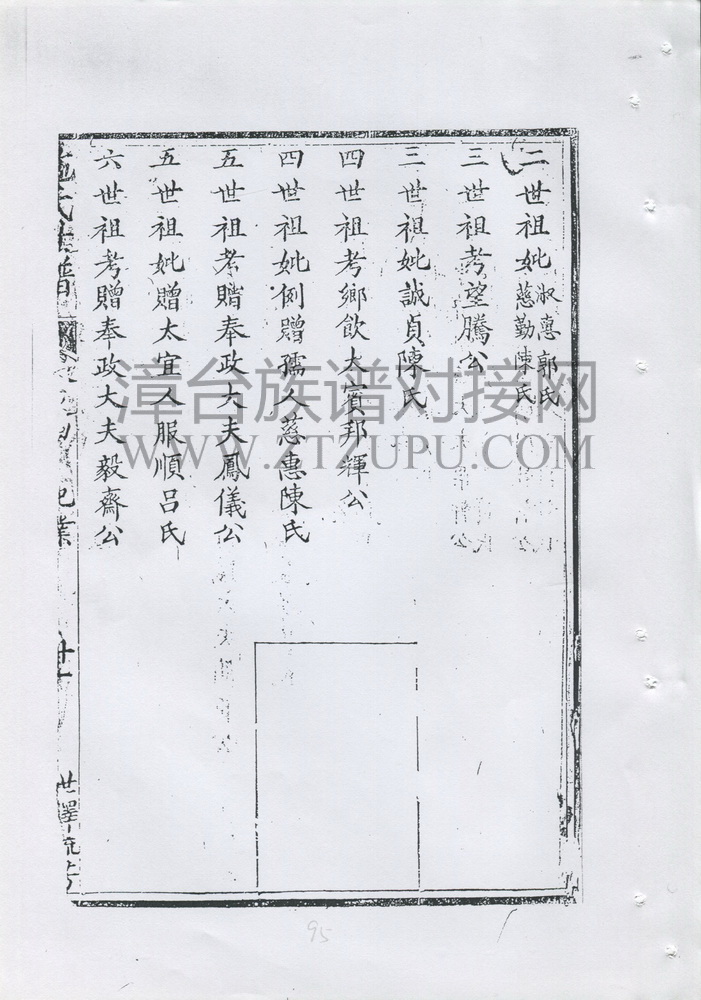 二世祖妣淑惠郭氏
慈勤陳氏
三世祖考望騰公
三世祖妣誠貞陳氏
四世祖考鄉飲大賓邦輝公
四世祖妣例贈孺人慈惠陳氏
五世祖考贈奉政大夫鳳儀公
五世祖妣贈太宜人服順呂氏
六世祖考贈奉政大夫毅齋公
氏族譜
世澤流芳
漳台族谱对接网
WWW.ZTZUPU.COM
95